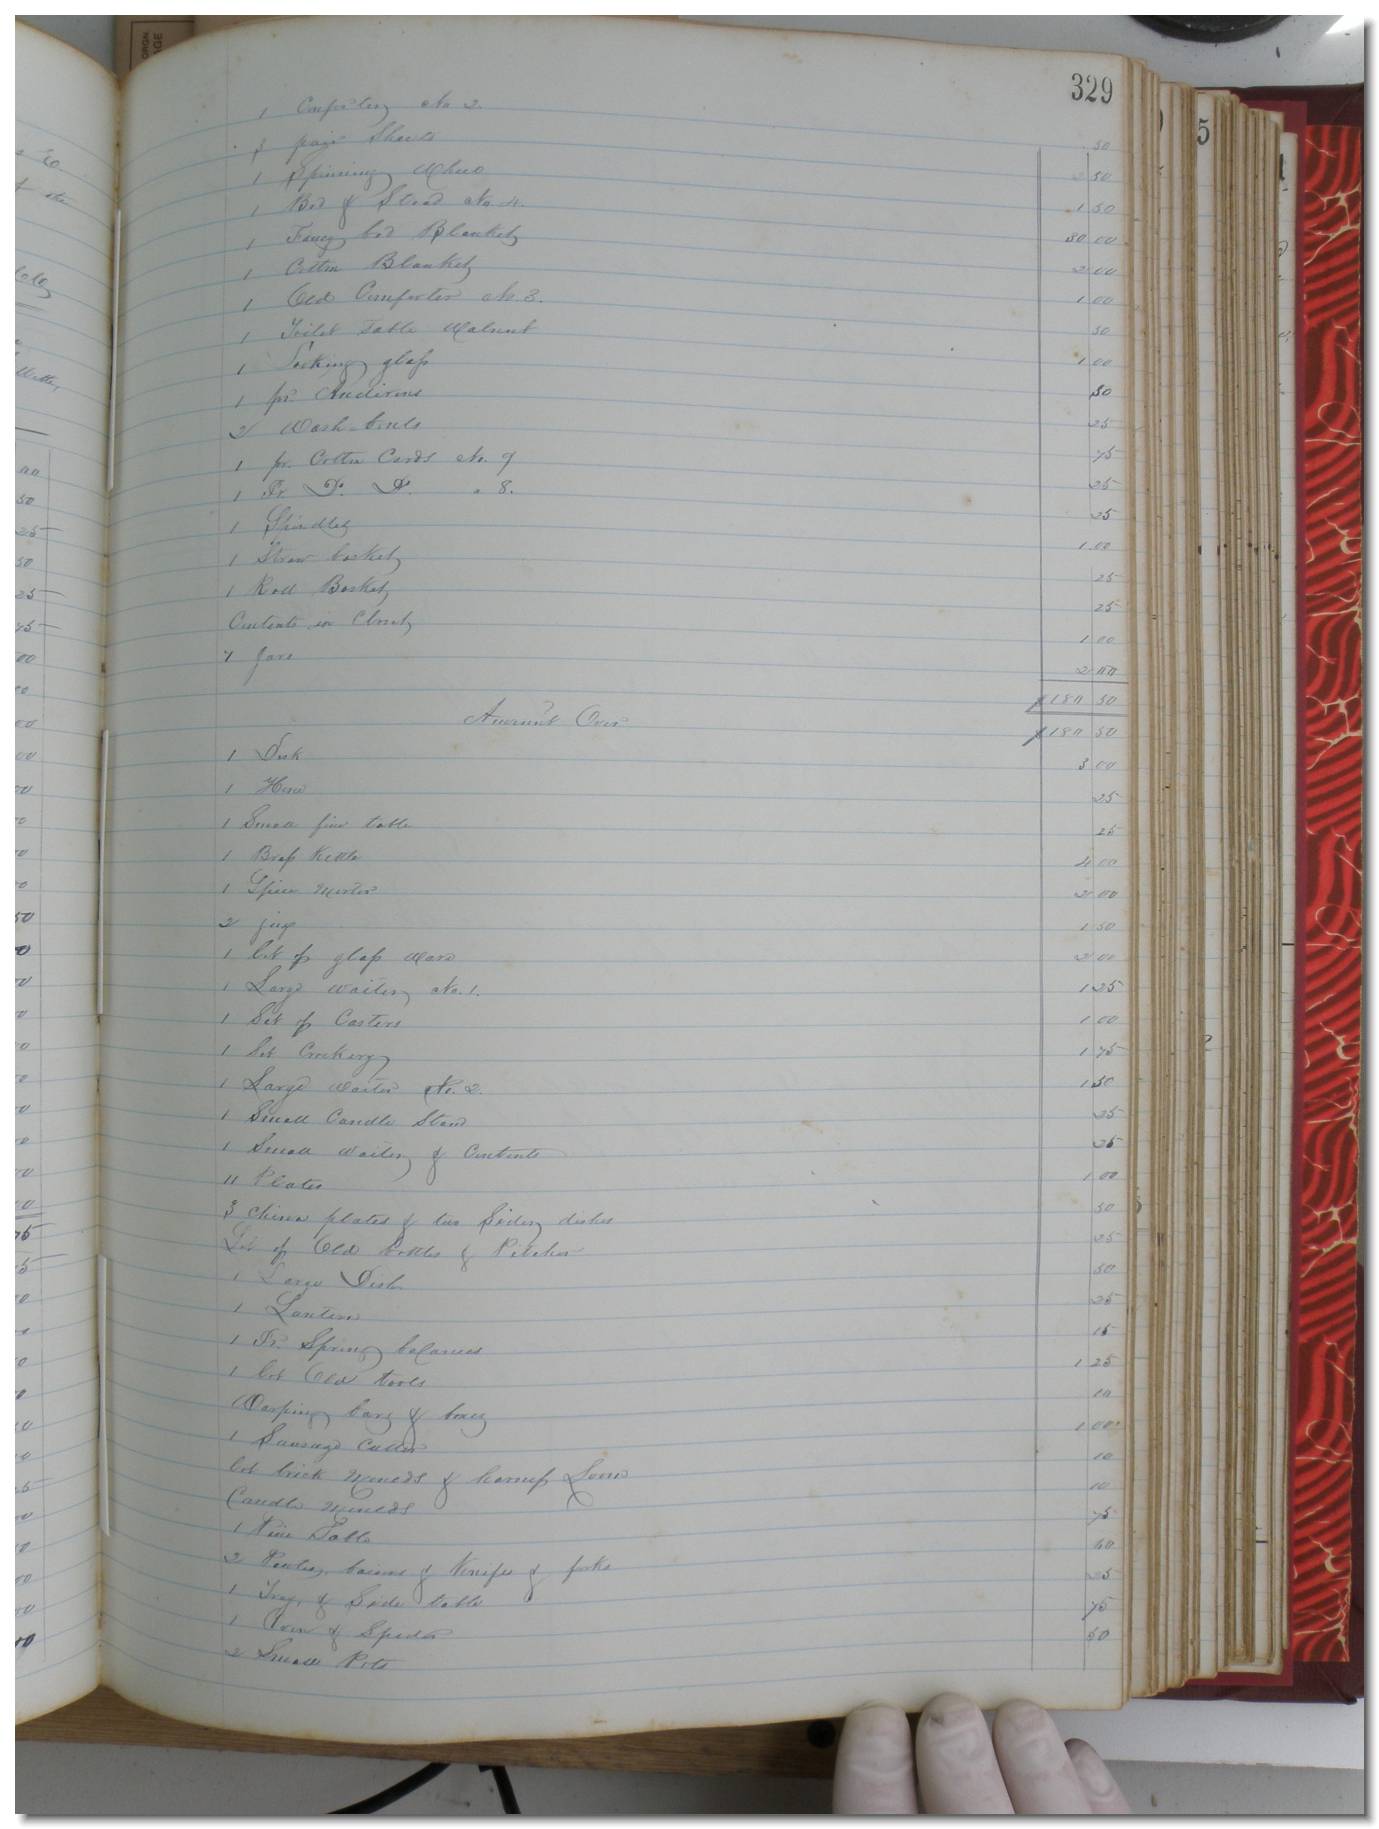 329
1 Comforter No 2. 50
3 pair Sheets 2 50
1 Spinning Wheel 1 50
1 Bed & Stead No. 4. 30 00
1 Fancy bed Blanket 2 00
1 Cotton Blanket 1 00
1 Old Comforter No. 3. 50
1 Toilet Table Walnut 1 00
1 Looking glass 50
1 pr Andirons 25
2 Wash-bowls 75
1 pr. Cotton Cards No. 9 25
1 Pr. D. D. " 8. 25
1 Spindles 1.00
1 Straw basket 25
1 Rod Basket 25
Contents in Closet 1 00
7 Jars 2 00
$180 50
Amount Over $180 50
1 Desk 3 00
1 25
1 Small pine table 25
1 Brass Kettle 4 00
1 Spice Morter 2 00
2 jugs 1 50
1 lot of glass ware 2 00
1 Large waiter No. 1. 1 25
1 Set of Casters 1 00
1 Set Crockery 1 75
1 Large waiter No. 2. 1 50
1 Small Candle Stand 25
1 Small waiter & Contents 25
11 Plates 1 00
3 china plates & two dishes 50
Lot of Old bottles & Pitcher 25
1 Large Dish 50
1 Lantern 25
1 Pr. Spring balances 15
1 lot Old tools 1 25
Warping bars & boxes 10
1 Sausage Cutter 1 00
lot brick moulds & harness Loom 10
Candle moulds 10
1 Pine Table 75
2 Pewter basins & Knifes & forks 60
1 Tray & Side table 25
1 Oven & Spider 75
2 Small Pots 50